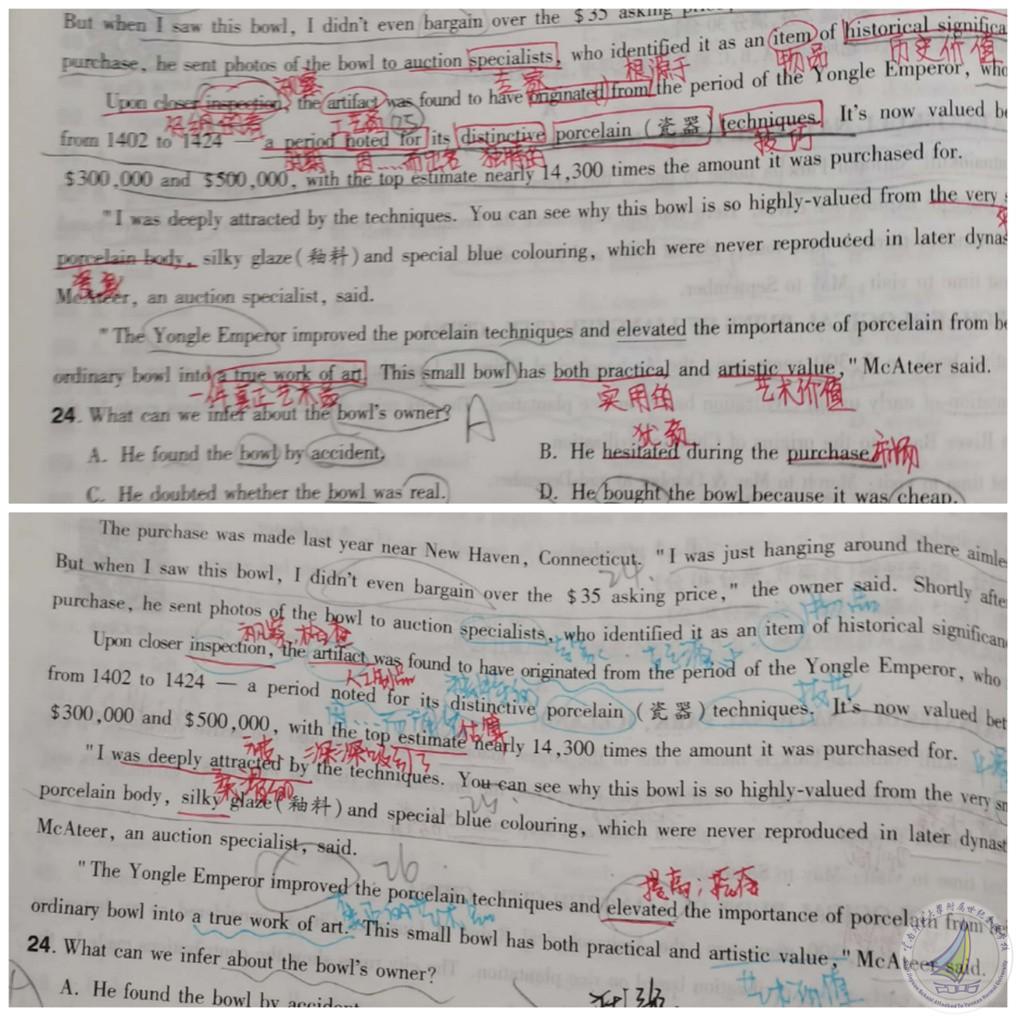 But when I saw this bowl, I didn't even bargain over the $35 asking
purchase, he sent photos of the bowl to auction specialists, who identified it as an item of historical significa
观察 专家 根源于 物品 历史价值
Upon closer inspection, the artifact was found to have originated from the period of the Yongle Emperor, who
仔细 工艺品
from 1402 to 1424 — a period noted for its distinctive porcelain (瓷器) techniques. It's now valued be
因....而出名 独特的 技巧
$300,000 and $500,000, with the top estimate nearly 14,300 times the amount it was purchased for.
"I was deeply attracted by the techniques. You can see why this bowl is so highly-valued from the very s
porcelain body, silky glaze(釉料)and special blue colouring, which were never reproduced in later dynas
McAteer, an auction specialist, said.
"The Yongle Emperor improved the porcelain techniques and elevated the importance of porcelain from be
ordinary bowl into a true work of art. This small bowl has both practical and artistic value," McAteer said.
一件真正艺术品 实用的 艺术价值
24. What can we infer about the bowl's owner? A
犹豫
A. He found the bowl by accident. B. He hesitated during the purchase.
C. He doubted whether the bowl was real. D. He bought the bowl because it was cheap.
The purchase was made last year near New Haven, Connecticut. "I was just hanging around there aimle
24.
But when I saw this bowl, I didn't even bargain over the $35 asking price," the owner said. Shortly afte
物品
purchase, he sent photos of the bowl to auction specialists, who identified it as an item of historical significan
观察,检查 专家
Upon closer inspection, the artifact was found to have originated from the period of the Yongle Emperor, who
人工制品 独特的 技艺
from 1402 to 1424 — a period noted for its distinctive porcelain (瓷器) techniques. It's now valued bet
因...而 估算
$300,000 and $500,000, with the top estimate nearly 14,300 times the amount it was purchased for.
被 深深吸引了
"I was deeply attracted by the techniques. You can see why this bowl is so highly-valued from the very sm
柔滑的 25
porcelain body, silky glaze(釉料)and special blue colouring, which were never reproduced in later dynast
McAteer, an auction specialist, said.
26 提高;
"The Yongle Emperor improved the porcelain techniques and elevated the importance of porcelain from be
真正的艺术品
ordinary bowl into a true work of art. This small bowl has both practical and artistic value," McAteer said.
艺术价值
24. What can we infer about the bowl's owner?
A. He found the bowl by accident